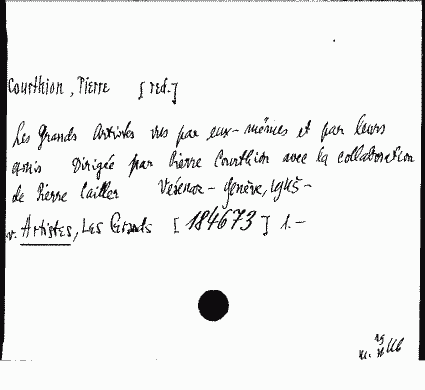 Courthion, Pierre [red.]
Les Grands Artistes vus par eux-mêmes et par leurs
amis Dirigée par Pierre Courthion avec la collaboration
de Pierre Cailler Vésenaz - Genève, 1945 -
v. Artistes, Les Grands [184673] 1.-